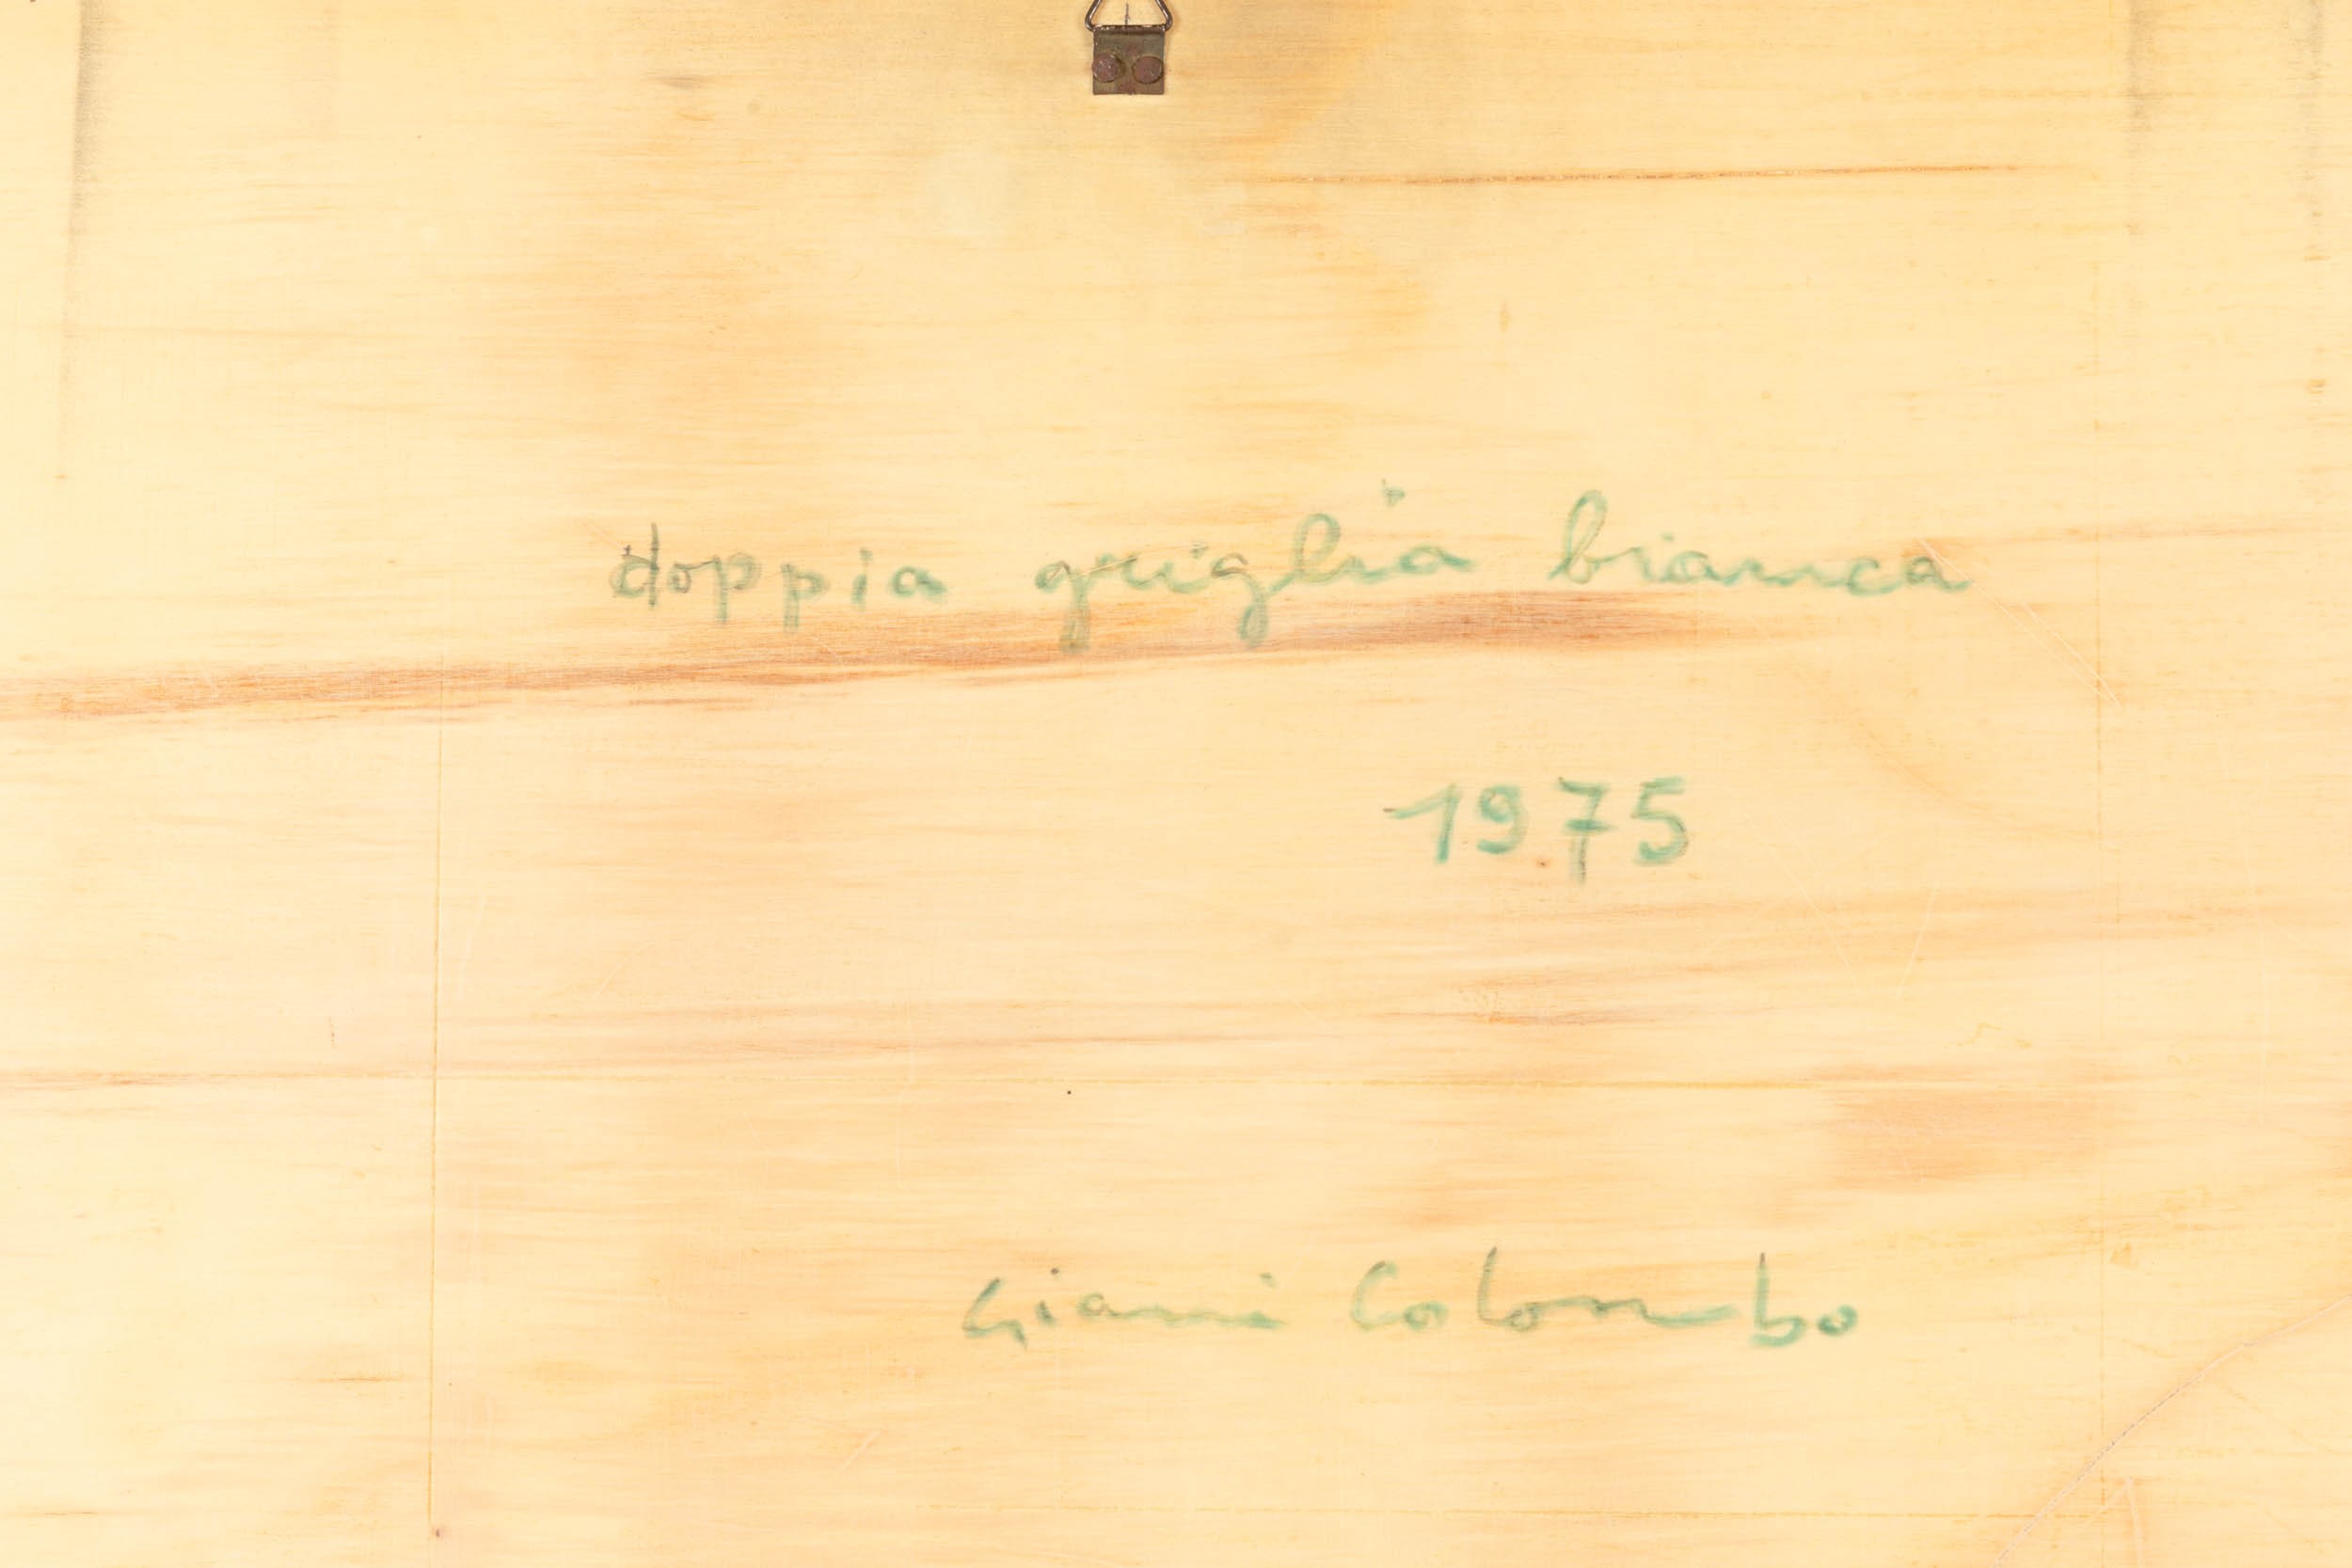 doppia griglia bianca
1975
Gianni Colombo